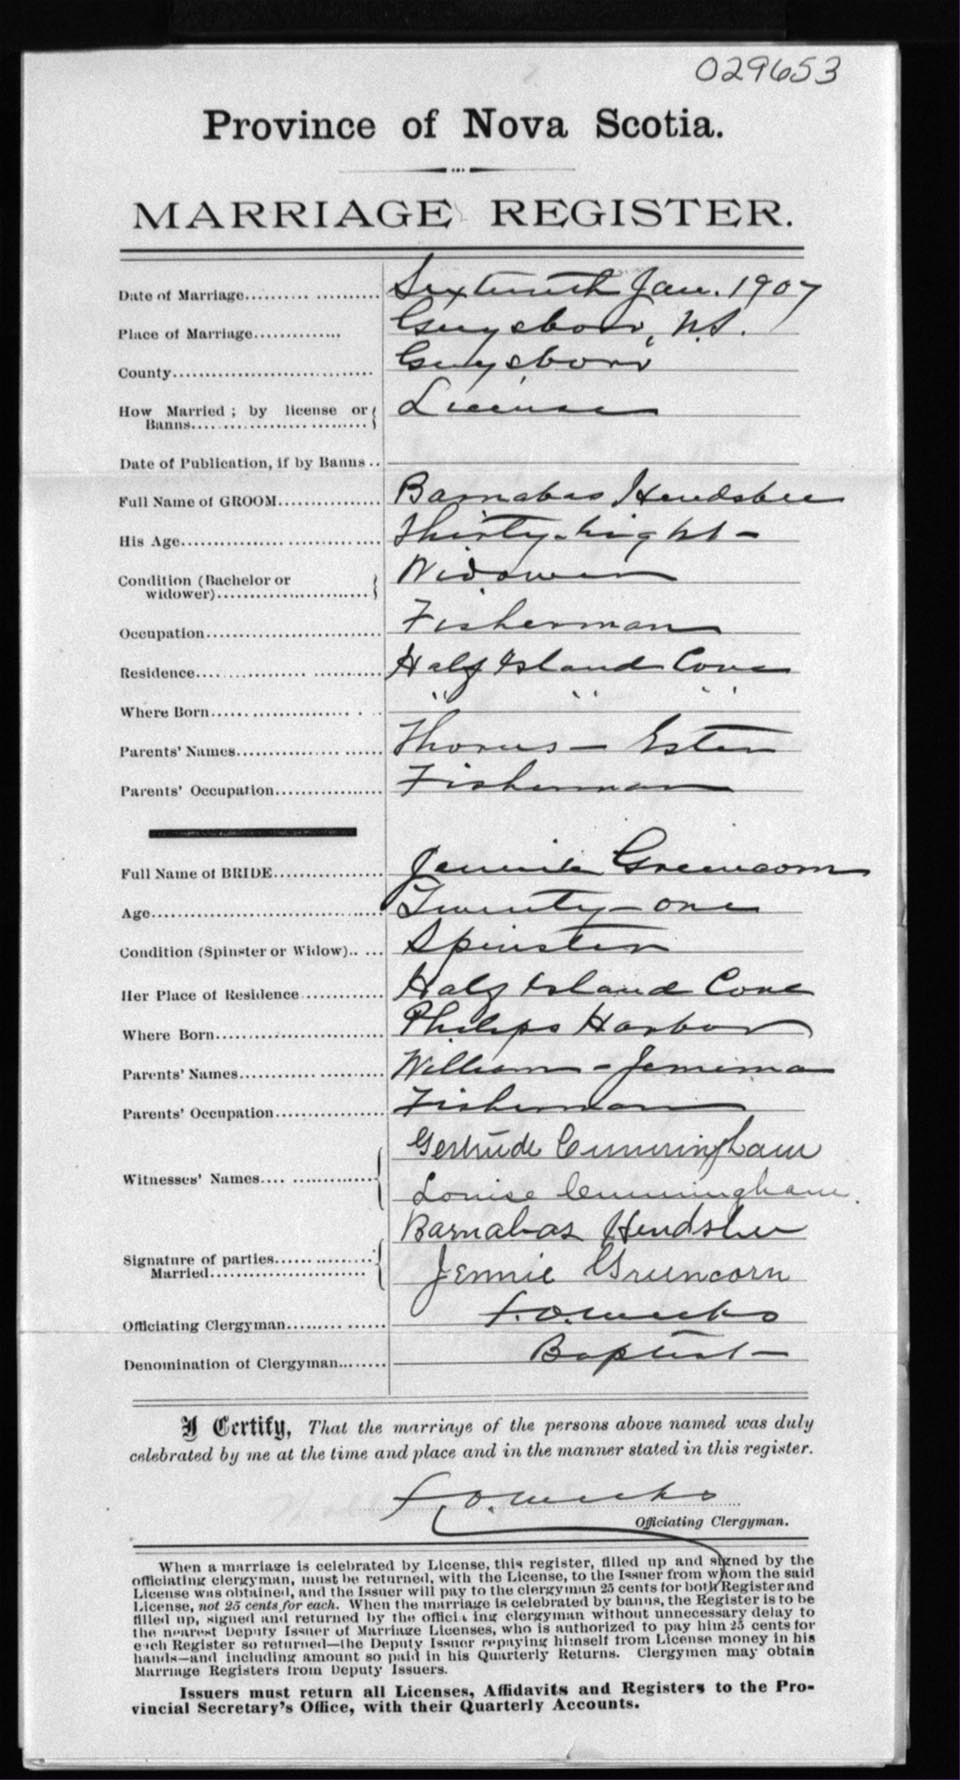 029653
Province of Nova Scotia.
MARRIAGE REGISTER.
Date of Marriage.......... .............. Sixteenth Jan. 1907
Place of Marriage.............. Guysboro, N.S.
County.............................. Guysboro
How Married ; by license or License
Banns...............................
Date of Publication, if by Banns ..
Full Name of GROOM............... Barnabas Hendsbee
His Age.............................. Thirty-eight -
Condition (Bachelor or Widower
widower).......................
Occupation.......................... Fisherman
Residence............................ Half Island Cove
Where Born....................... . .. " " "
Parents' Names...................... Thomas - Ester
Parents' Occupation................ Fisherman
Full Name of BRIDE................ Jennie Greencorn
Age.................................... Twenty-one
Condition (Spinster or Widow).. ... Spinster
Her Place of Residence............ Half Island Cove
Where Born......................... Philips Harbor
Parents' Names...................... William - Jemima
Parents' Occupation................ Fisherman
Gertrude Cunningham
Witnesses' Names.... .............. Louise Cunningham.
Barnabas Hendsbee
Signature of parties............... Jennie Greencorn
Married.......................
Officiating Clergyman......... ...... F.O. Weeks
Denomination of Clergyman....... Baptist -
I Certify, That the marriage of the persons above named was duly
celebrated by me at the time and place and in the manner stated in this register.
F.O. Weeks
Officiating Clergyman.
When a marriage is celebrated by License, this register, filled up and signed by the
officiating clergyman, must be returned, with the License, to the Issuer from whom the said
License was obtained, and the Issuer will pay to the clergyman 25 cents for both Register and
License, not 25 cents for each. When the marriage is celebrated by banns, the Register is to be
filled up, signed and returned by the offici ing clergyman without unnecessary delay to
the nearest Deputy Issuer of Marriage Licenses, who is authorized to pay him 25 cents for
each Register so returned—the Deputy Issuer repaying himself from License money in his
hands—and including amount so paid in his Quarterly Returns. Clergymen may obtain
Marriage Registers from Deputy Issuers.
Issuers must return all Licenses, Affidavits and Registers to the Pro-
vincial Secretary's Office, with their Quarterly Accounts.